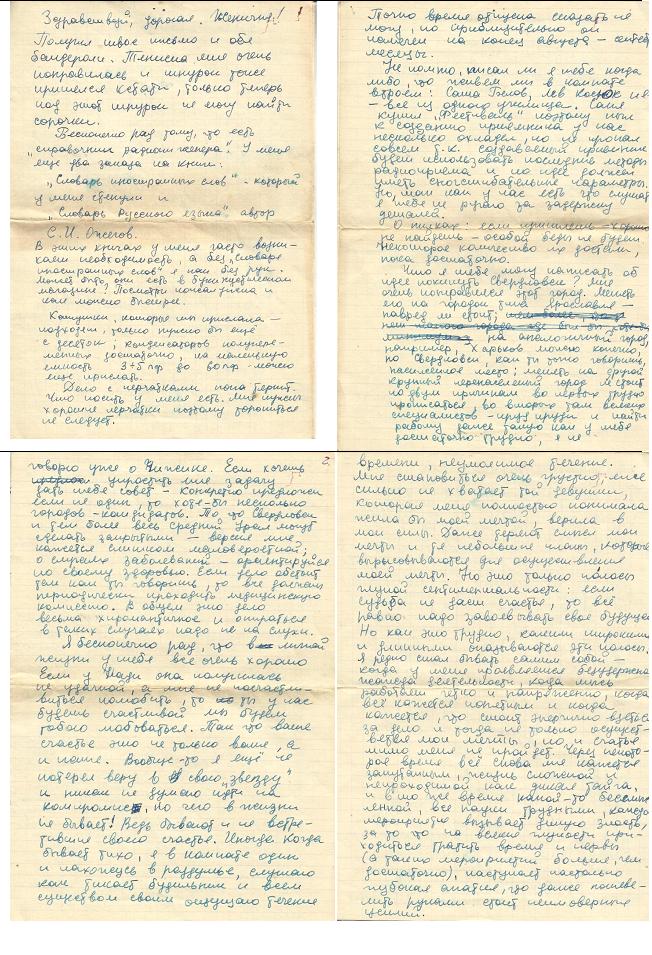 Здравствуй, дорогая Женечка! 1
Получил твое письмо и обе
бандероли. Тениска мне очень
понравилась и шнурок тоже
пришелся кстати, только теперь
под этот шнурок не могу найти
сорочки.
Бесконечно рад тому, что есть
"справочник радиоинженера". У меня
еще два заказа на книги:
"Словарь иностранных слов" - который
у меня
"Словарь Русского языка" автор
С. И. Ожегов.
В этих книгах у меня часто возни-
кает необходимость, а без "словаря
иностранных слов" я как без рук.
Может быть они есть в букинистическом
магазине? Посмотри пожалуйста и
как можно быстрее.
Катушки, которые ты прислала -
подходят, только нужно бы ещё
с десяток; конденсаторов полупере-
менных достаточно, на маленькую
емкость 3÷5 пф до 60 пф - можно
ещё прислать.
Дело с перчатками пока терпит.
Что носить у меня есть. Мне нужны
хорошие перчатки поэтому торопиться
не следует.
Точно время отпуска сказать не
могу, но приблизительно он
намечен на конец августа - сентябрь
месяцы.
Не помню, писал ли я тебе когда
либо, что живём мы в комнате
втроем: Саша Белов, Лев и я
- все из одного училища. Саня
купил "Фестиваль" поэтому пыл
к созданию приемника у нас
несколько охладел, но не пропал
совсем т.к. создаваемый приемник
будет использовать последние методы
радиоприема и по идее должен
иметь сногсшибательные параметры.
Но, так как у нас есть что слушать
я тебя не ругаю за задержку
деталей.
О туках: если пришлешь - хорошо
не найдешь - особой беды не будет.
Некоторое количество их достали,
пока достаточно.
Что я тебе могу написать об
идее покинуть Свердловск? Мне
очень понравился этот город. Менять
его на городок типа Ярославля -
навряд ли стоит;
на аналогичный город,
например, Харьков можно конечно,
но Свердловск, как ты точно говоришь,
населенное место; менять на другой
крупный первоклассный город не стоит
по двум причинам во первых трудно
прописаться, во вторых там всяких
специалистов - пруд пруди и найти
работу даже такую как у тебя
достаточно трудно, я не
2.
говорю уже о Чижике. Если хочешь
упростить мне задачу
дать тебе совет - конкретно предложи
если не один, то хотя-бы несколько
городов-кандидатов. То что Свердловск
и тем более весь Средний Урал могут
сделать закрытыми - версия мне
кажется слишком маловероятной;
о случаях заболеваний - ориентируйся
по своему здоровью. Если дело обстоит
так как ты говоришь, то вы должны
периодически проходить медицинскую
комиссию. В общем это дело
весьма хиромантичное и опираться
в таких случаях надо не на слухи.
Я бесконечно рад, что в личной
жизни у тебя всё очень хорошо
Если у Нади она получилась
не удачной, а мне не посчастли-
виться полюбить, то ты у нас
будешь счастливой мы будем
тобой любоваться. Так что ваше
счастье это не только ваше, а
и наше. Вообще-то я ещё не
потерял веру в свою "звезду"
и никак не думаю идти на
компромисс, но чего в жизни
не бывает! Ведь бывают и не встре-
тившие своего счастье. Иногда когда
бывает тихо, я в комнате один
и нахожусь в раздумье, слушаю
как тикает будильник и всем
существом своим ощущаю течение
времени, неумолимое течение.
Мне становиться очень грустно, мне
сильно не хватает той девушки,
которая меня полностью понимала
жила бы моей мечтой, верила в
мои силы. Даже теряет смысл мои
мечты и те небольшие планы, которые
вырисовываются для осуществления
моей мечты. Но это только полосы
глупой сентиментальности: если
судьба не даст счастье, то всё
равно надо завоевывать своё будущее
Но как это трудно, какими широкими
и длинными оказываются эти полосы.
Я редко стал бывать самим собой -
когда у меня появляется безудержная
жажда деятельности, когда мысль
работает чётко и напряженно, когда
всё кажется понятным и когда
кажется, что стоит энергично взяться
за дело и тогда не только осущест-
вятся мои мечты, но и счастье
мимо меня не пройдет. Через некото-
рое время всё снова мне кажется
запутанным, жизнь сложной и
непроходимой как дикая тайга,
и в то же время какой-то бессмыс-
ленной, все науки трудными, каждое
мероприятие вызывает дикую злость,
за то что на всякие глупости при-
ходиться тратить время и нервы
(а таких мероприятий больше, чем
достаточно), наступает настолько
глубокая апатия, что даже пошеве-
лить руками стоит неимоверных
усилий.